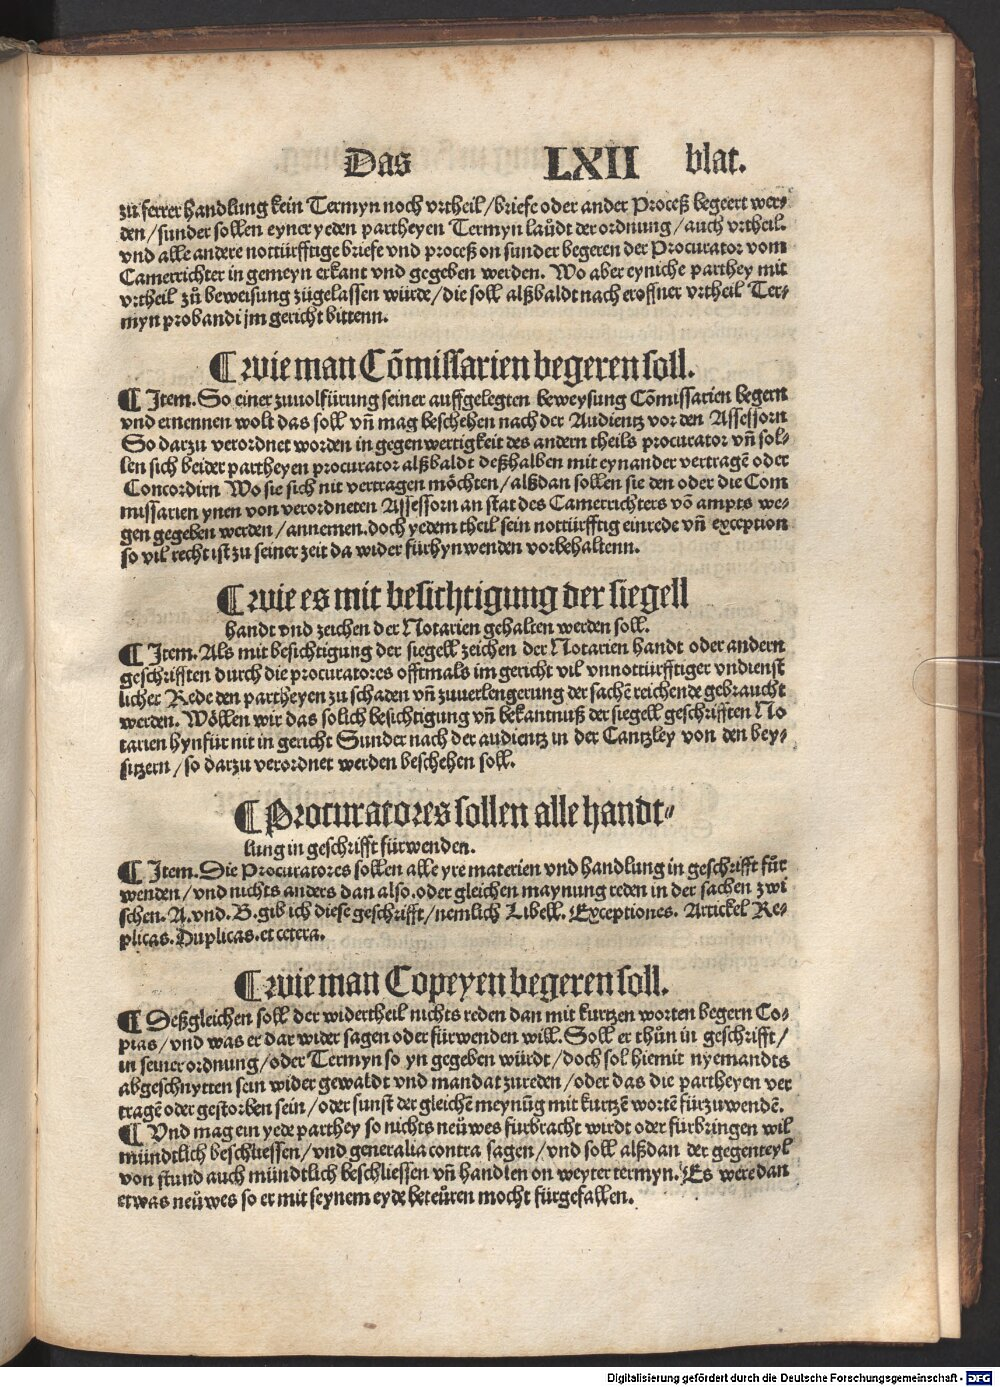 Das LXII blat.
zů ferrer handlung kein Termyn noch vrtheil/briefe oder ander Proceß begeert wer⸗
den/sunder sollen eyner yeden partheyen Termyn laůdt der ordnung/auch vrtheil.
vnd alle andere nottürfftige briefe vnd proceß on sunder begeren der Procurator vom
Camerrichter in gemeyn erkant vnd gegeben werden. Wo aber eyniche parthey mit
vrtheil zů beweisung zůgelassen würde/die soll alßbaldt nach eroffner vrtheil Ter⸗
myn probandi jm gericht bittenn.
¶ wie man Cõmissarien begeren soll.
¶ Jtem. So einer zuuolfürung seiner auffgelegten beweysung Cõmissarien begern
vnd ernennen wolt das soll vñ mag beschehen nach der Audientz vor den Assessorn
So darzu verordnet worden in gegenwertigkeit des andern theils procurator vñ sol⸗
len sich beider partheyen procurator alßbaldt deßhalben mit eynander vertragẽ oder
Concordirn Wo sie sich nit vertragen möchten/alßdan sollen sie den oder die Com
missarien ynen von verordneten Assessorn an stat des Camerrichters võ ampts we⸗
gen gegeben werden/annemen. doch yedem theil sein nottürfftig einrede vñ exception
so vil recht ist zu seiner zeit da wider fürhyn wenden vorbehaltenn.
¶ wie es mit besichtigung der siegell
handt vnd zeichen der Notarien gehalten werden soll.
¶ Jtem. Als mit besichtigung der siegell zeichen der Notarien handt oder andern
geschrifften durch die procuratores offtmals im gericht vil vnnottürfftiger vndienst
licher Rede den partheyen zu schaden vñ zuuerlengerung der sachẽ reichende gebraucht
werden. Wöllen wir das solich besichtigung vñ bekantnuß der siegell geschrifften No
tarien hynfür nit in gericht Sunder nach der audientz in der Cantzley von den bey⸗
sitzern/so darzu verordnet werden beschehen soll.
¶ Procuratores sollen alle handt⸗
lung in geschrifft fürwenden.
¶ Jtem. Die Procuratores sollen alle yre materien vnd handlung in geschrifft für
wenden/vnd nichts anders dan also. oder gleichen maynung reden in der sachen zwi
schen. A. vnd. B. gib ich diese geschrifft/nemlich Libell. Exceptiones. Artickel Re⸗
plicas. Duplicas. et cetera.
¶ wie man Copeyen begeren soll.
¶ Deßgleichen soll der widertheil nichts reden dan mit kurtzen worten begern Co⸗
pias/vnd was er dar wider sagen oder fürwenden will. Soll er thůn in geschrifft/
in seiner ordnung/oder Termyn so yn gegeben würdt/doch sol hiemit nyemandts
abgeschnytten sein wider gewaldt vnd mandat zureden/oder das die partheyen ver
tragẽ oder gestorben sein/oder sunst der gleichẽ meynũg mit kurtzẽ wortẽ fürzuwendẽ.
¶ Vnd mag ein yede parthey so nichts neůwes furbracht wirdt oder fürbringen wil
mündtlich beschliessen/vnd generalia contra sagen/vnd soll alßdan der gegenteyl
von stund auch mündtlich beschliessen vñ handlen on weyter termyn. Es were dan
etwas neůwes so er mit seynem eyde beteůren mocht fürgefallen.
Digitalisierung gefördert durch die Deutsche Forschungsgemeinschaft - DFG